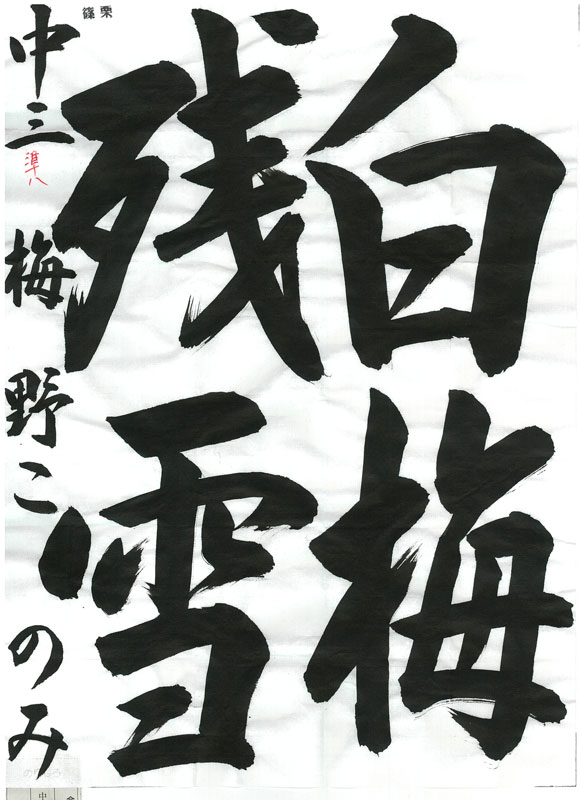 白梅
残雪
中三 梅野このみ
準八
篠栗